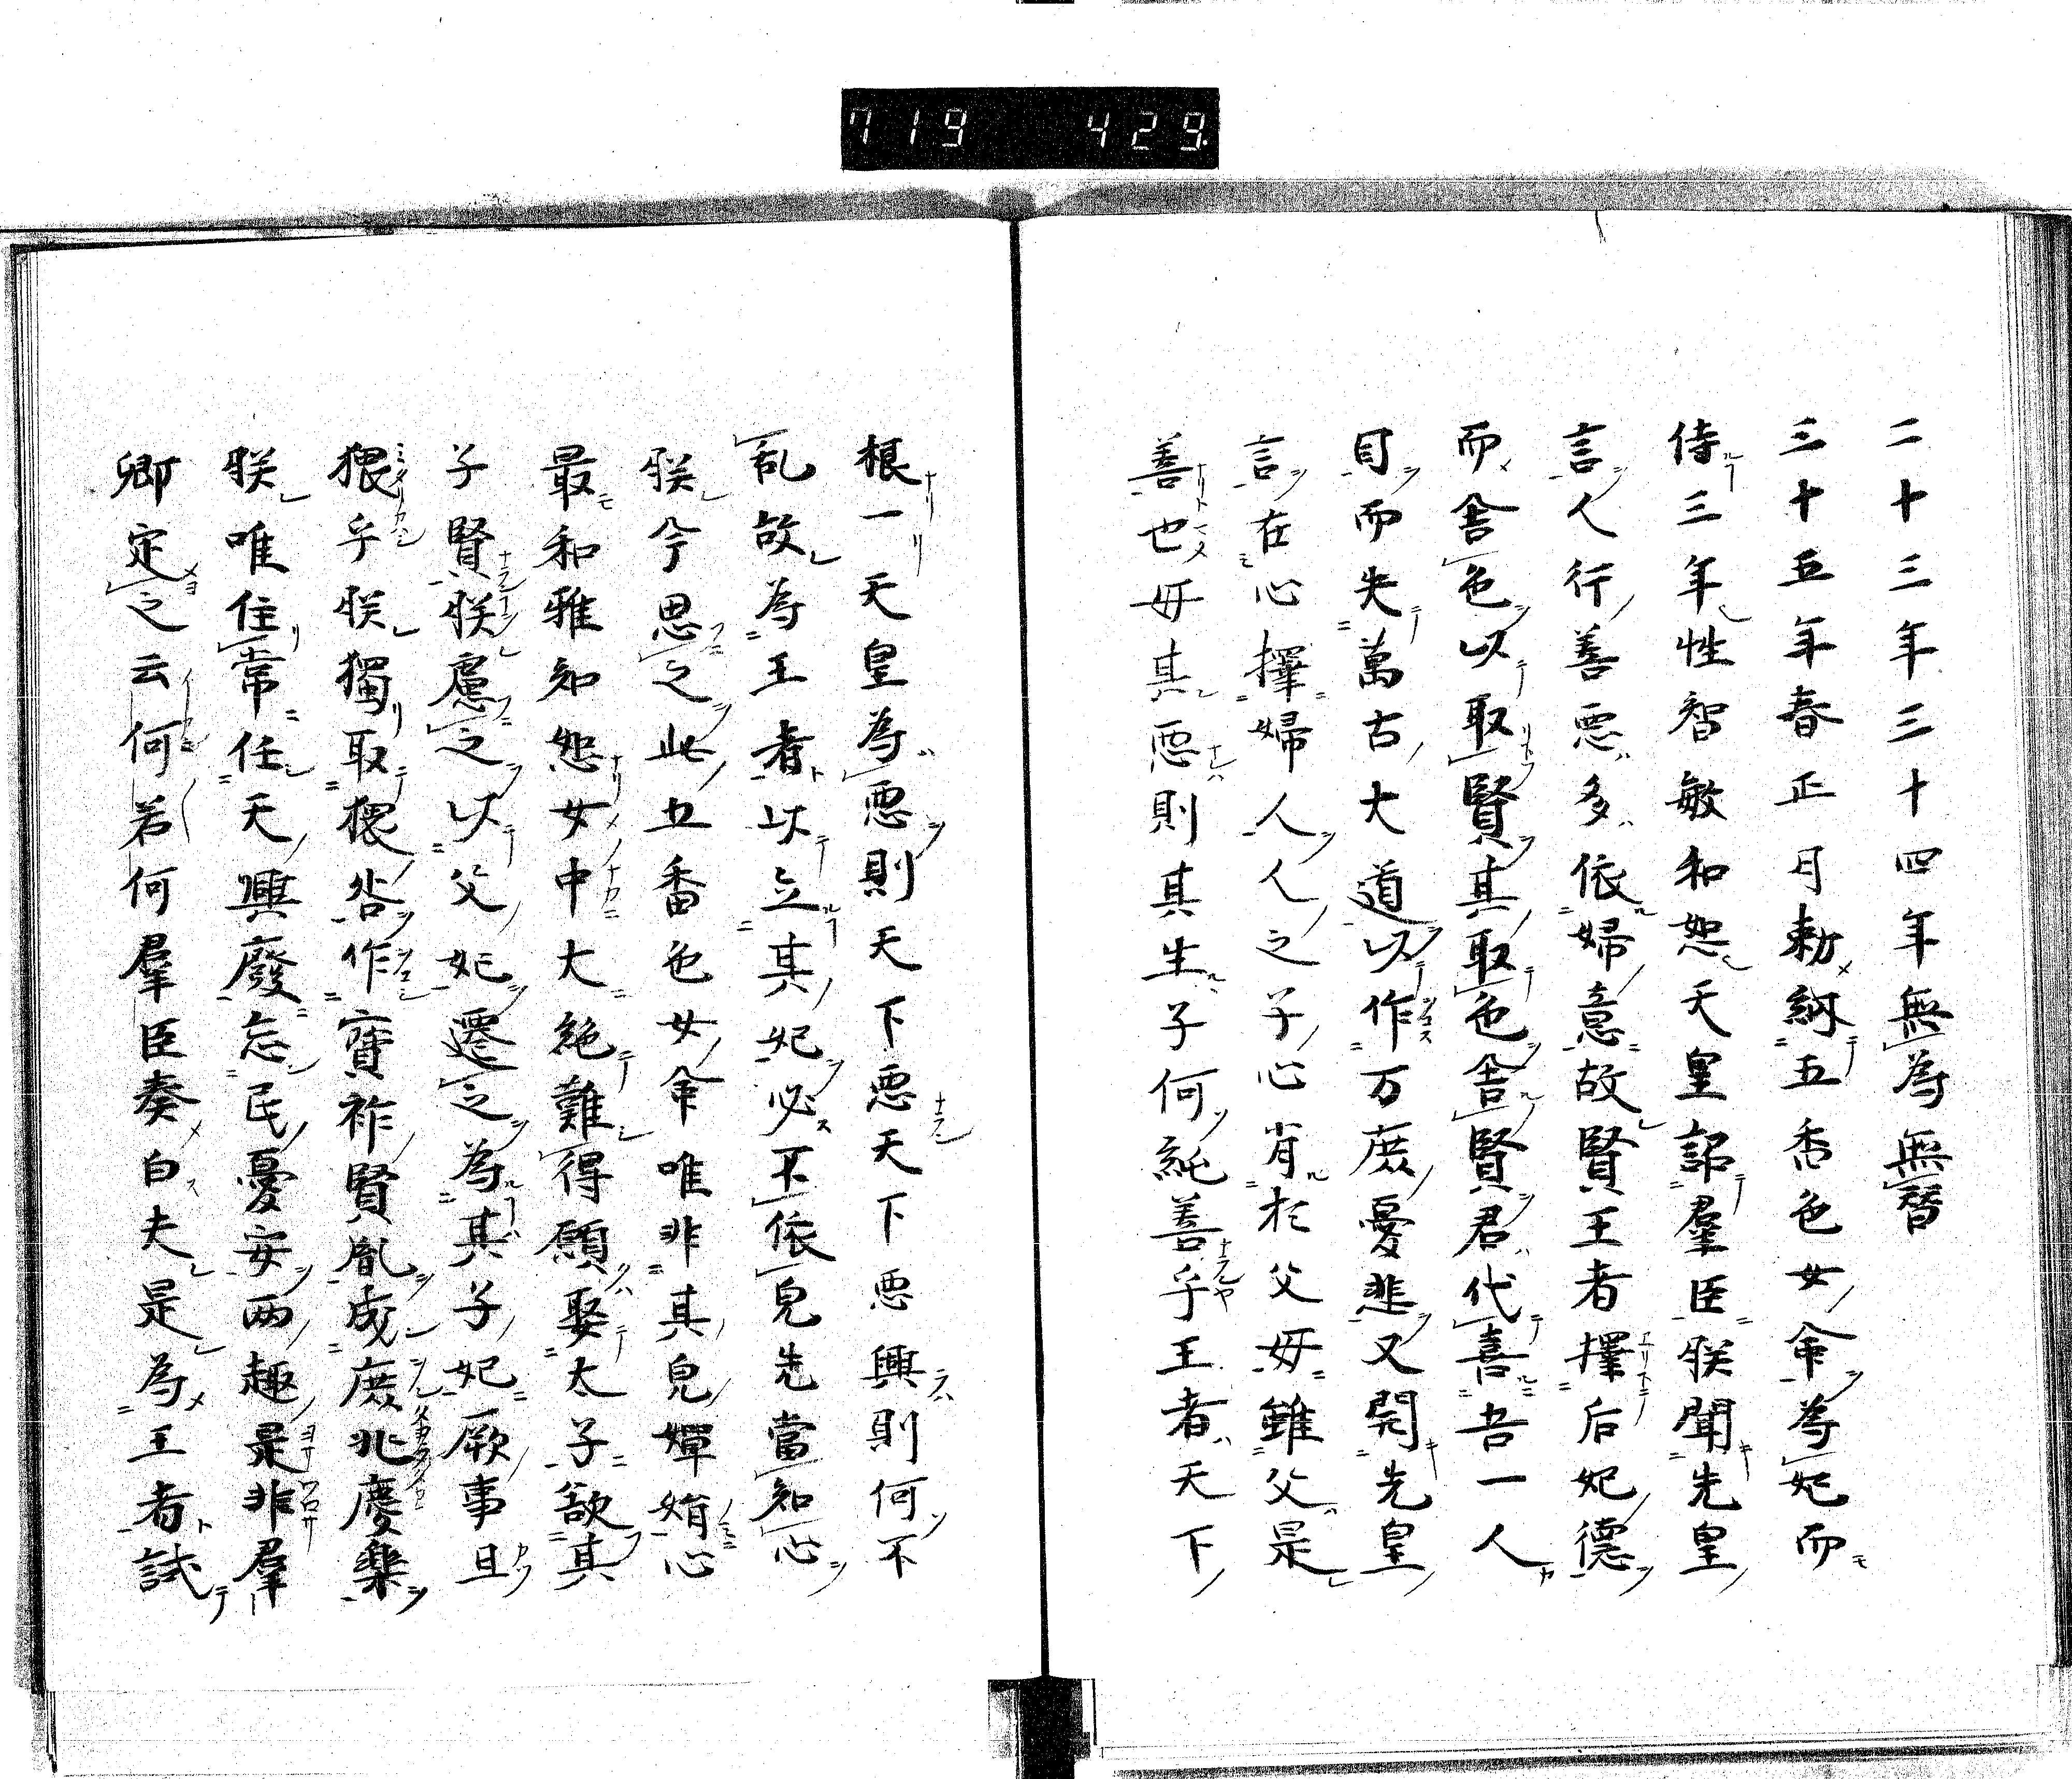 719 429
二十三年三十四年無為無替
三十五年春正月勅納五香色女命為妃而
侍三年性智敏和恕天皇詔羣臣朕聞先皇
言人行善悪多依婦意故賢王者擇后妃德
而舎色以取賢其取色舎賢君代喜吾一人
目而失萬古大道以作万庶憂悲又聞先皇
言在心擇婦人人之子心肖於父母雖父是
善也母其悪則其生子何純善乎王者天下
根一天皇為悪則天下悪天下悪興則何不
乱故為王者以立其妃必不依皃先當知心
朕今思之此五番色女命唯非其皃嬋娟心
最和雅知恕女中大絶難得願娶太子欲其
子賢朕慮之以父妃遷之為其子妃厥事且
猥乎朕獨取猥咎作寶祚賢胤成庶兆慶樂
朕唯住常任天興廢忘民憂安两趣是非羣
卿定之云何若何羣臣奏白夫是為王者試